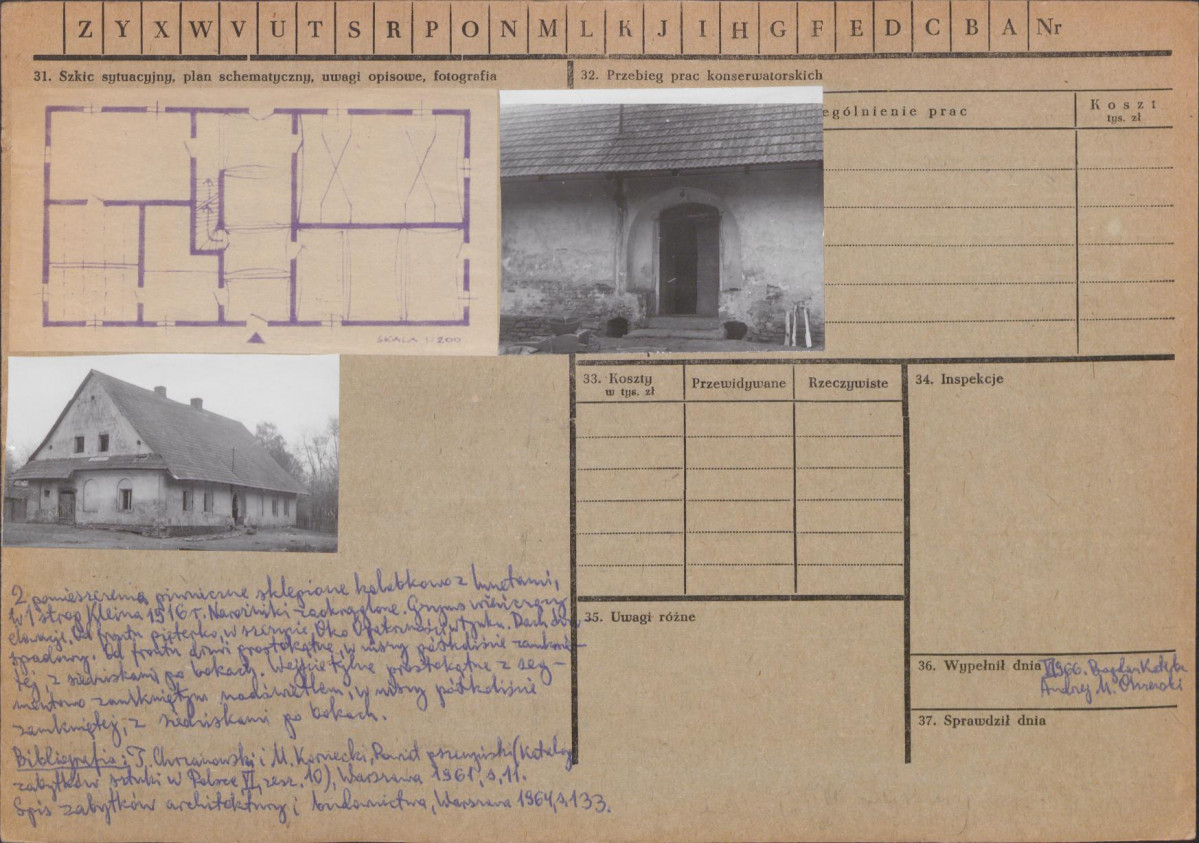 Z Y X W V U T S R P O N M L K J I H G F E D C B A Nr
31. Szkic sytuacyjny, plan schematyczny, uwagi opisowe, fotografia
32. Przebieg prac konserwatorskich
ególnienie prac
Koszt
tys. zł
SKALA 1:200
33. Koszty
w tys. zł
Przewidywane
Rzeczywiste
34. Inspekcje
2 pomieszczenia piwniczne sklepione kolebkowo z lunetami,
w 1 strop Kleina 1516 r. Narożniki zaokrąglone. Gzyms wieńczący
elewacje. Od frontu pięterko, w szczycie, Oko Opatrzności w tynku. Dach dwu
spadowy. Od frontu drzwi prostokątne, w niszy półkoliście zamknię-
tej z siedziskami po bokach. Wejście tylne prostokątne z seg-
mentowo zamkniętym nadświetlem, w niszy półkoliście
zamkniętej, z siedziskami po bokach.
Bibliografia: T. Chrzanowski i M. Kornecki, Powiat (Katalog
zabytków sztuki w Polsce VI, zesz. 10), Warszawa 1961, s. 11.
Spis zabytków architektury i budownictwa, Warszawa 1964, s. 133.
35. Uwagi różne
36. Wypełnił dnia 1966. Bogdan
Andrzej M. Olszewski
37. Sprawdził dnia